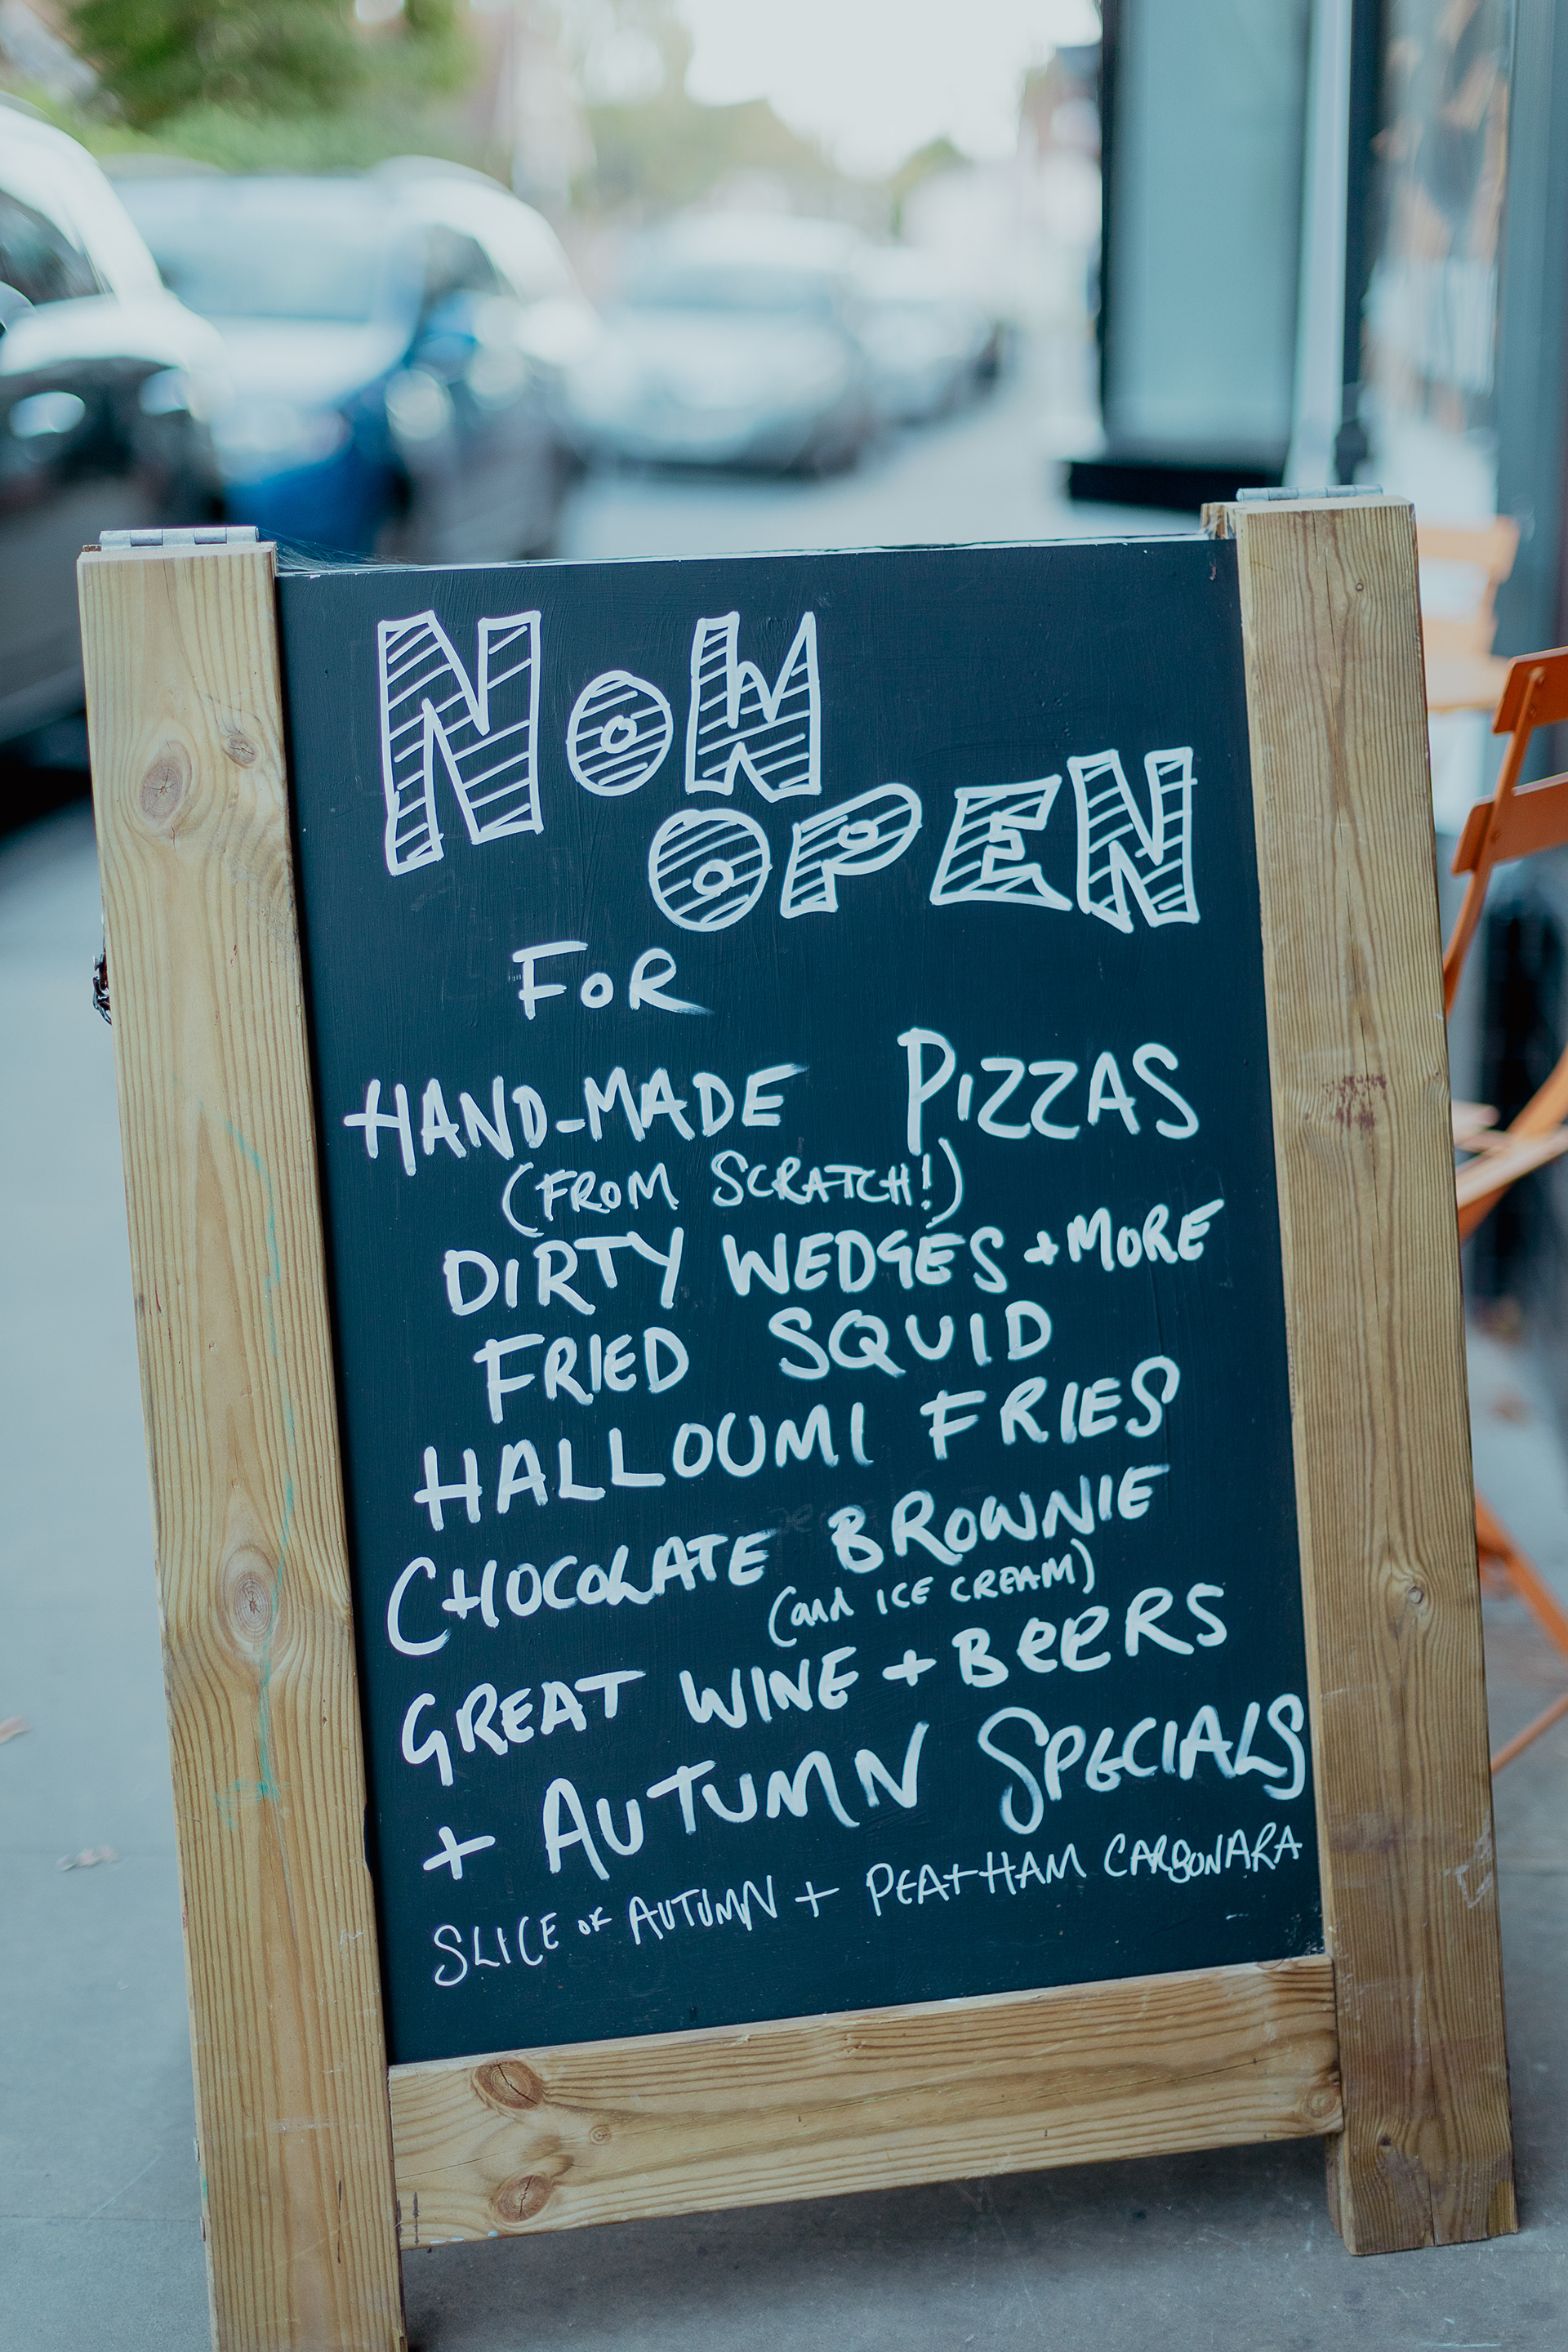 NOW
OPEN
FOR
HAND-MADE PIZZAS
(FROM SCRATCH!)
DIRTY WEDGES + MORE
FRIED SQUID
HALLOUMI FRIES
CHOCOLATE BROWNIE
(and ICE CREAM)
GREAT WINE + BEERS
+ AUTUMN SPECIALS
SLICE OF AUTUMN + PEA+HAM CARBONARA